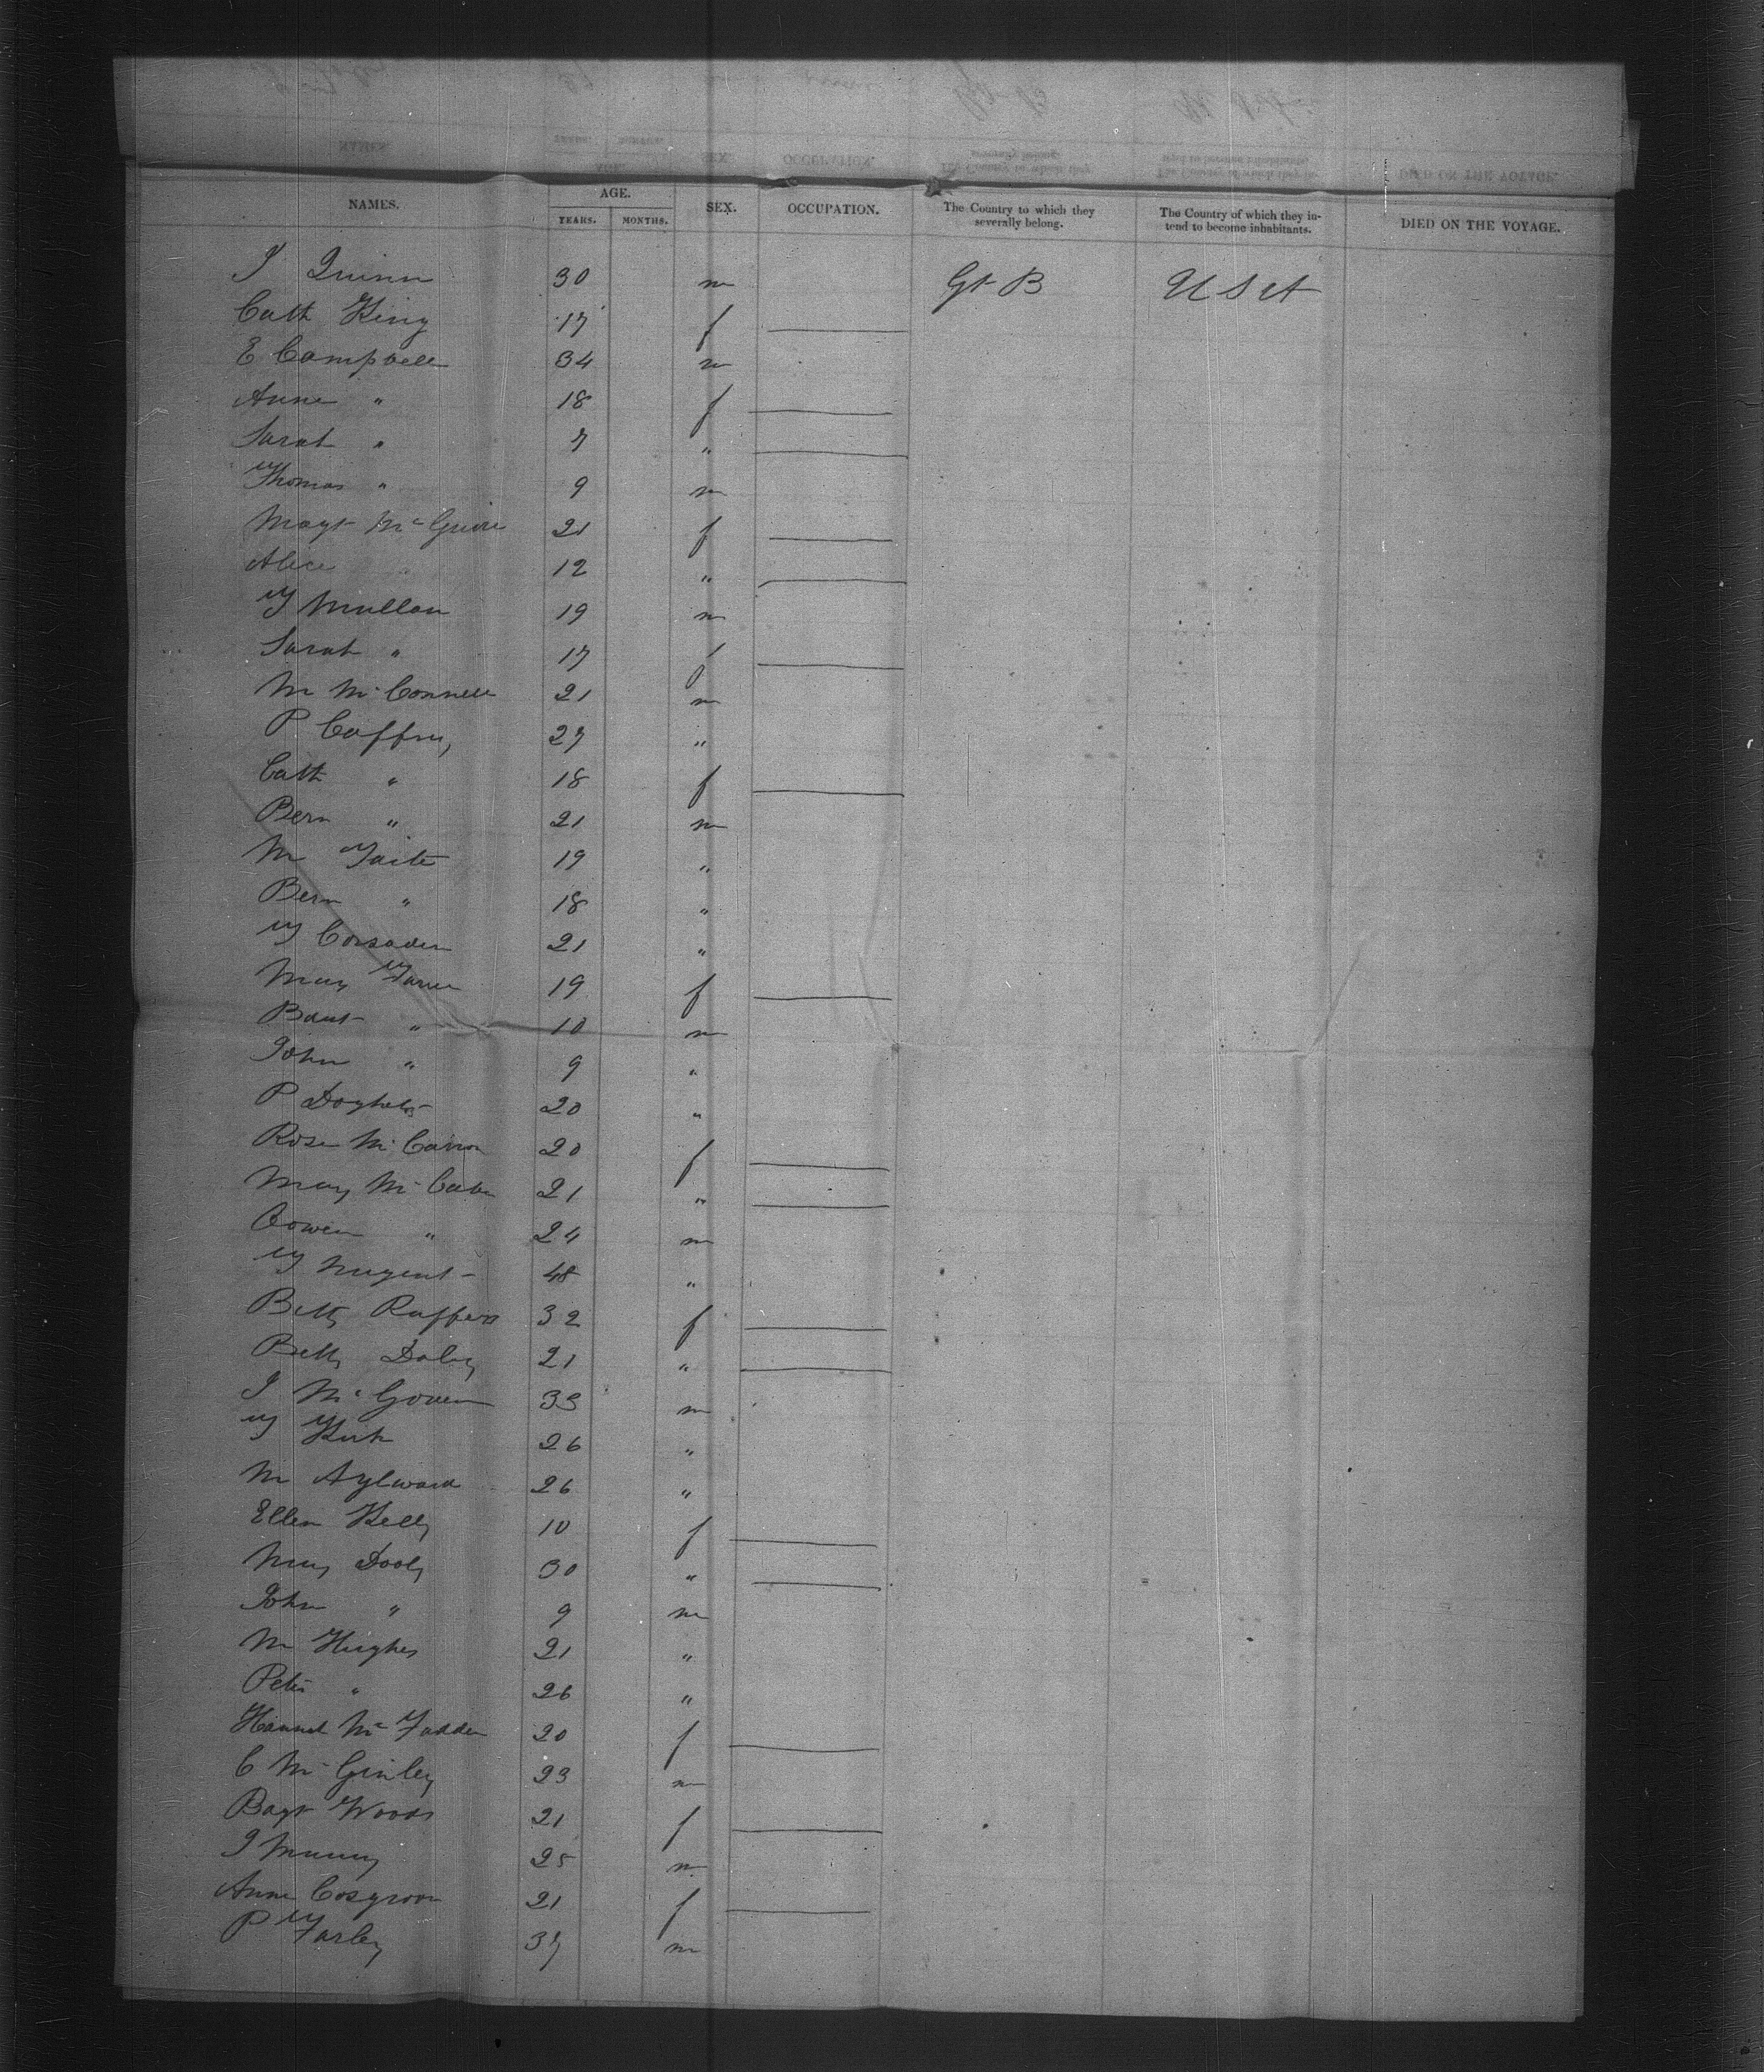 NAMES. AGE. SEX. OCCUPATION. The Country to which they severally belong. The Country of which they intend to become inhabitants. DIED ON THE VOYAGE.
YEARS. MONTHS.
J Quinn 30 m Gt B U S A
Cath King 17 f
E Campbell 34 m
Anne " 18 f
Sarah " 7 "
Thomas " 9 m
Magt McGuire 21 f
Alice 12 "
T Mullan 19 m
Sarah " 17 f
M McConnell 21 m
P Caffrey 27 "
Cath " 18 f
Bern " 21 m
M Taite 19 "
Bern " 18 "
T 21 "
Mary 19 f
" 10 m
John " 9 "
P 20 "
Rose McCarron 20 f
Mary McCabe 21 "
" 24 m
T Nugent 48 "
Betty 32 f
Betty 21 "
J McGovern 33 m
T Kirk 26 "
M Aylward 26 "
Ellen Kelly 10 f
Mary Dooly 30 "
John " 9 m
M Hughes 21 "
Peter " 26 "
Hannah McFadden 20 f
C McGinley 23 m
Woods 21 f
J 25 m
Anne Cosgrove 21 f
P Farley 37 m